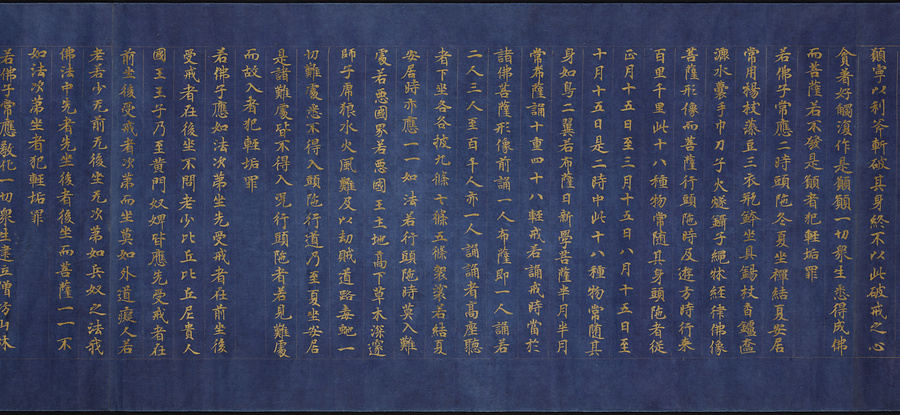 願寧以利斧斬破其身終不以此破戒之心
貪著好觸復作是願願一切衆生悉得成佛
而菩薩若不發是願者犯輕垢罪
若佛子常應二時頭陀冬夏坐禪結夏安居
常用楊枝藻豆三衣瓶鉢坐具錫杖香爐奩
漉水囊手巾刀子火燧鑷子繩牀經律佛像
菩薩形像而菩薩行頭陀時及遊方時行來
百里千里此十八種物常隨其身頭陀者從
正月十五日至三月十五日八月十五日至
十月十五日是二時中此十八種物常隨其
身如鳥二翼若布薩日新學菩薩半月半月
常布薩誦十重四十八輕戒若誦戒時當於
諸佛菩薩形像前誦一人布薩即一人誦若
二人三人至百千人亦一人誦誦者高座聽
者下坐各各披九條七條五條袈裟若結夏
安居時亦應一一如法若行頭陀時莫入難
處若惡國界若惡國王土地高下草木深邃
師子虎狼水火風難及以劫賊道路毒虵一
切難處悉不得入頭陀行道乃至夏坐安居
是諸難處皆不得入况行頭陀者若見難處
而故入者犯輕垢罪
若佛子應如法次第坐先受戒者在前坐後
受戒者在後坐不問老少比丘比丘尼貴人
國王王子乃至黃門奴婢皆應先受戒者在
前坐後受戒者次第而坐莫如外道癡人若
老若少无前无後坐无次第如兵奴之法我
佛法中先者先坐後者後坐而菩薩一一不
如法次第坐者犯輕垢罪
若佛子常應教化一切衆生建立僧坊山林